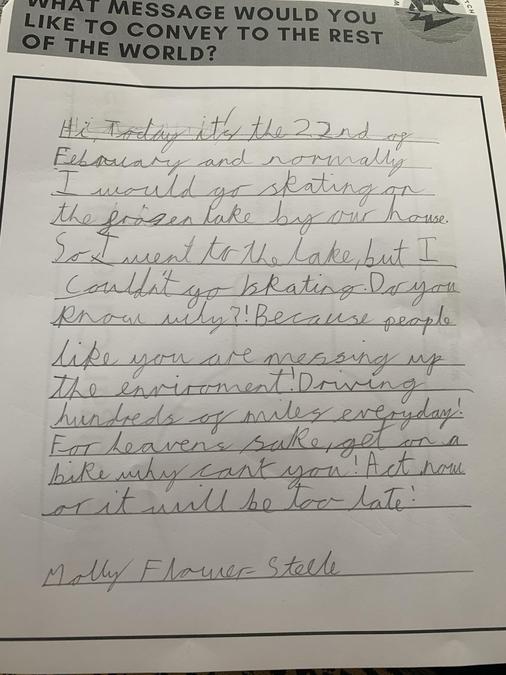 WHAT MESSAGE WOULD YOU
LIKE TO CONVEY TO THE REST
OF THE WORLD?
Hi, Today it's the 22nd of
February and normally
I would go skating on
the frozen lake by our house.
So I went to the lake, but I
couldn't go skating. Do you
know why?! Because people
like you are messing up
the enviroment! Driving
hundreds of miles everyday!
For heavens sake, get on a
bike why cant you! Act now
or it will be too late!
Molly Flower-Steele